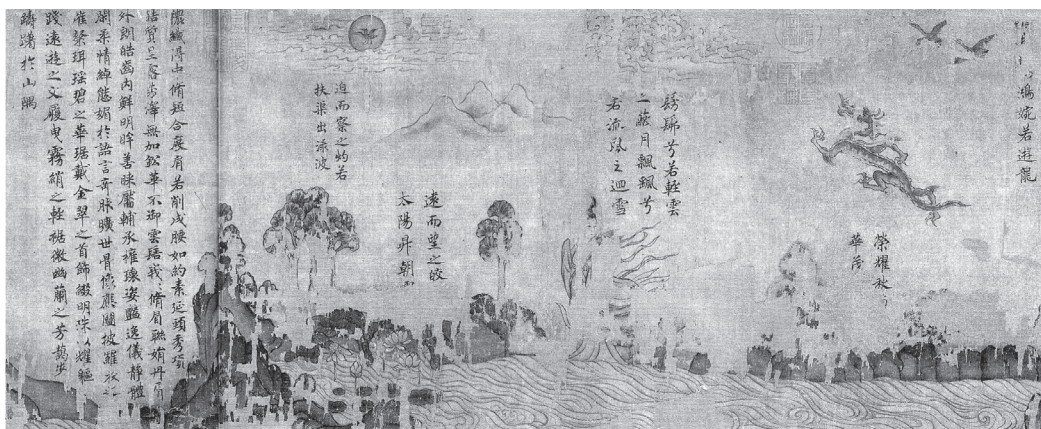 鴻婉若遊龍
榮耀秋
華茂
髣髴兮若輕雲
之蔽月飄颻兮
若流風之迴雪
遠而望之皎
太陽升朝
迫而察之灼若
扶渠出淥波
穠纖得中脩短合度肩若削成腰如約素延頸秀項
皓質呈露芳澤無加鉛華不御雲髻峩〻脩眉聯娟丹脣
外朗皓齒內鮮明眸善睞靨輔承權瓌姿豔逸儀靜體
閑柔情綽態媚於語言奇服曠世骨像應圖披羅衣之
璀粲珥瑤碧之華琚戴金翠之首飾綴明珠以耀軀
踐遠遊之文履曳霧綃之輕裾微幽蘭之芳藹步
躊躇於山隅